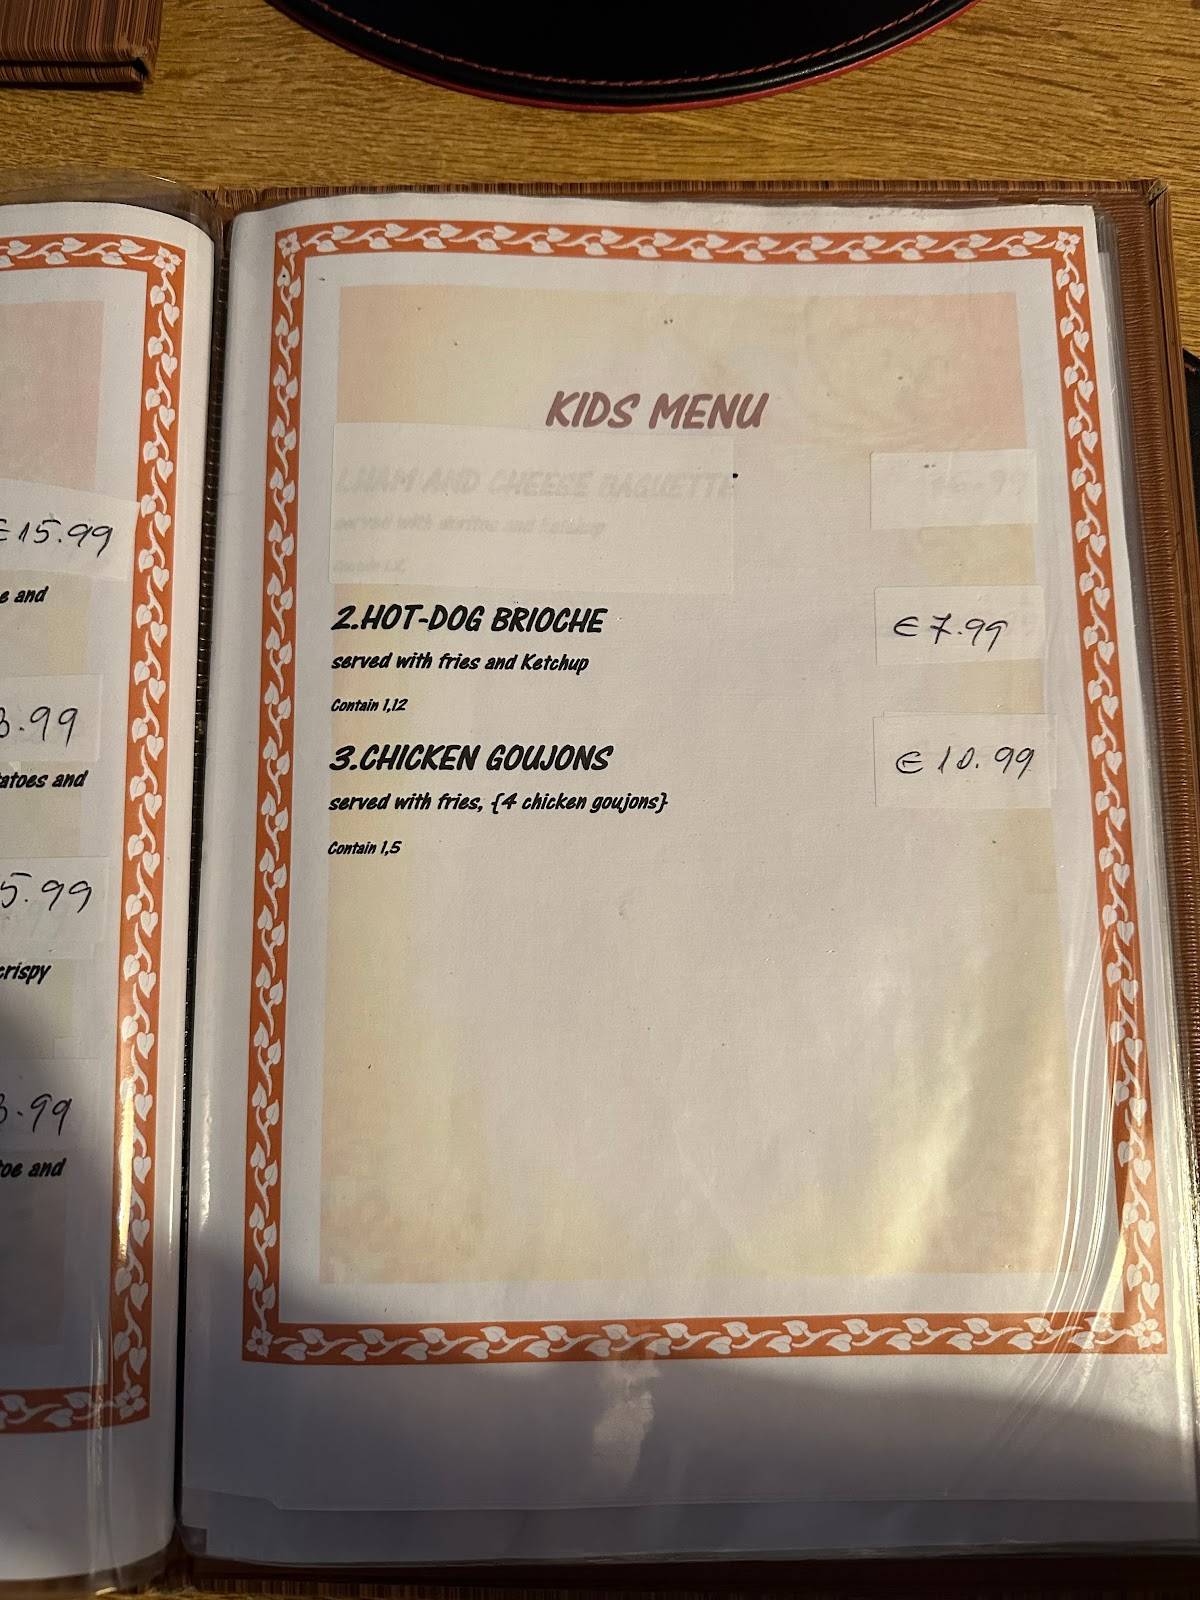 €15.99
e and
3.99
atoes and
5.99
crispy
3.99
toe and
KIDS MENU
1.HAM AND CHEESE BAGUETTE
served with doritos and Ketchup
2.HOT-DOG BRIOCHE €7.99
served with fries and Ketchup
Contain 1,12
3.CHICKEN GOUJONS €10.99
served with fries, {4 chicken goujons}
Contain 1,5